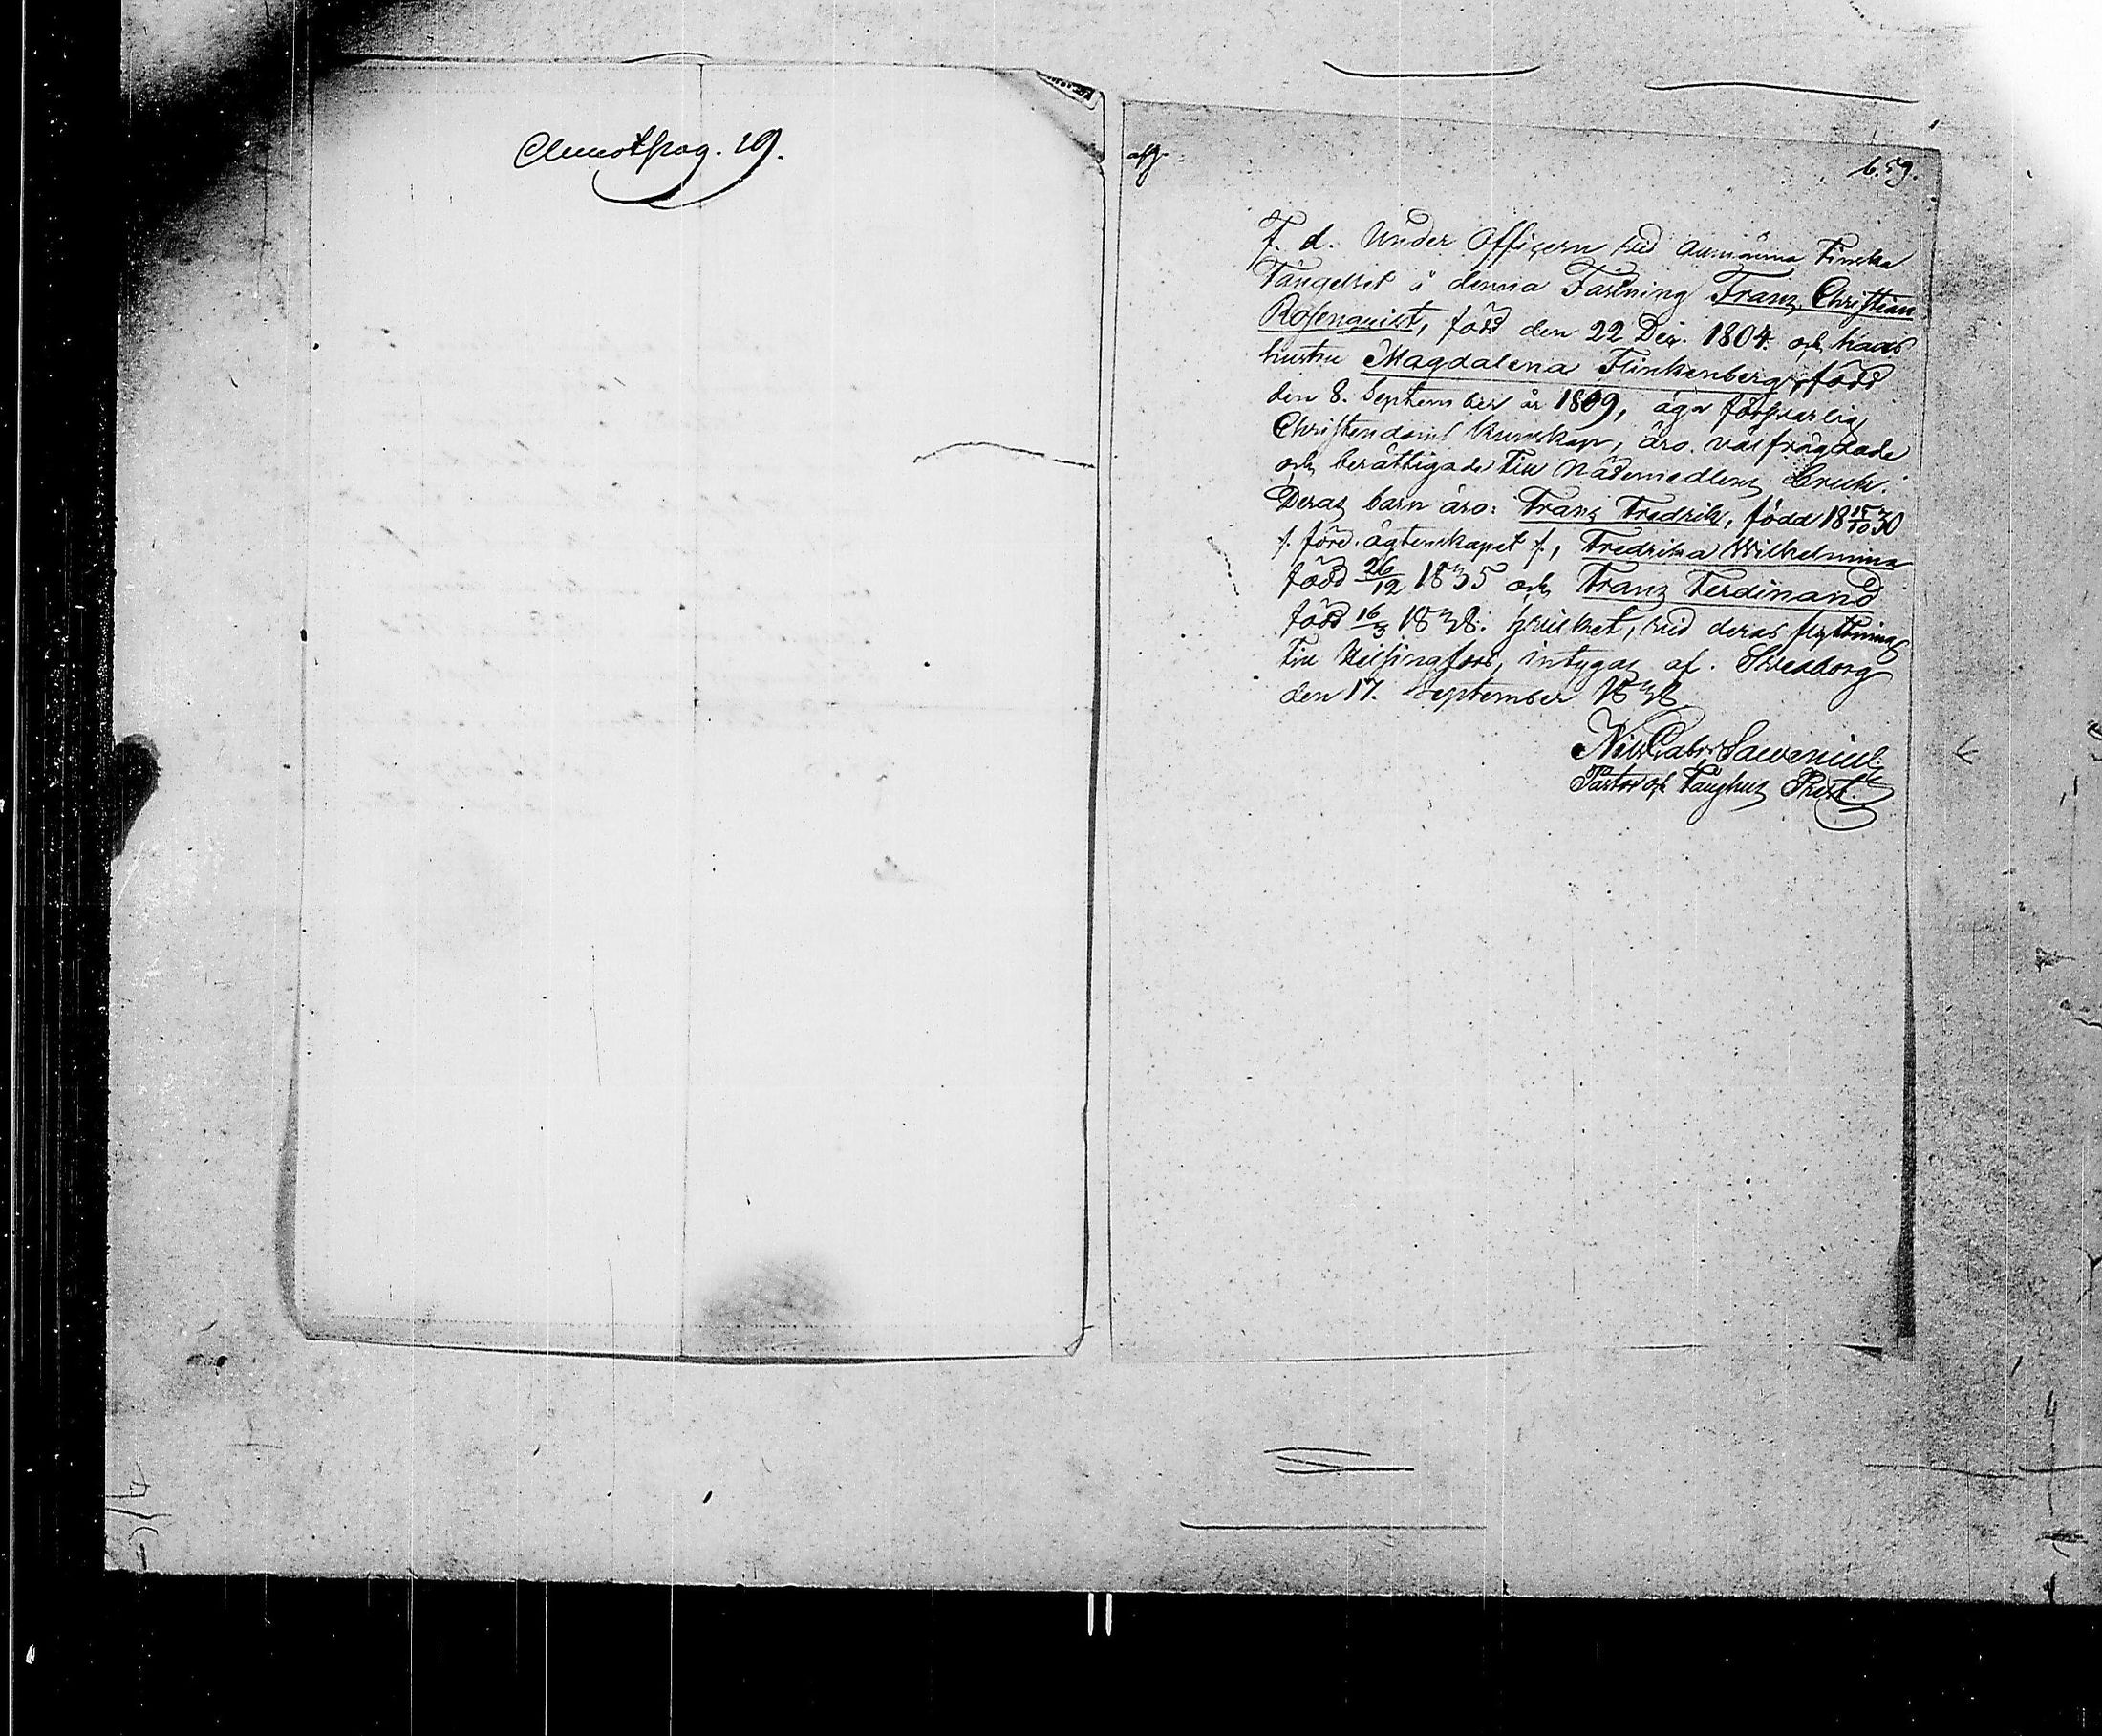 Annot. pag. 19.
afg.
b. 59.
F. d. Under Officern vid allmänna Finska
Fängelset i denna Fästning Franz Christian
Rosenquist, född den 22 Dec. 1804. och hans
hustru Magdalena Flinkenberg, född
den 8. September år 1809, äga försvarlig
Christendoms kunskap, äro välfrägdade
och berättigade till Nådemedlens bruk.
Deras barn äro: Franz Fredrik, född 18 15/10 30
/. före ägtenskapet /., Fredrika Wilhelmina
född 26/12 1835 och Franz Ferdinand
född 16/3 1838. Hvilket, vid deras flyttning
till Helsingfors, intygas af. Sveaborg
den 17. September 1838.
Nils Gabr.
Pastor och Fånghus Predik.